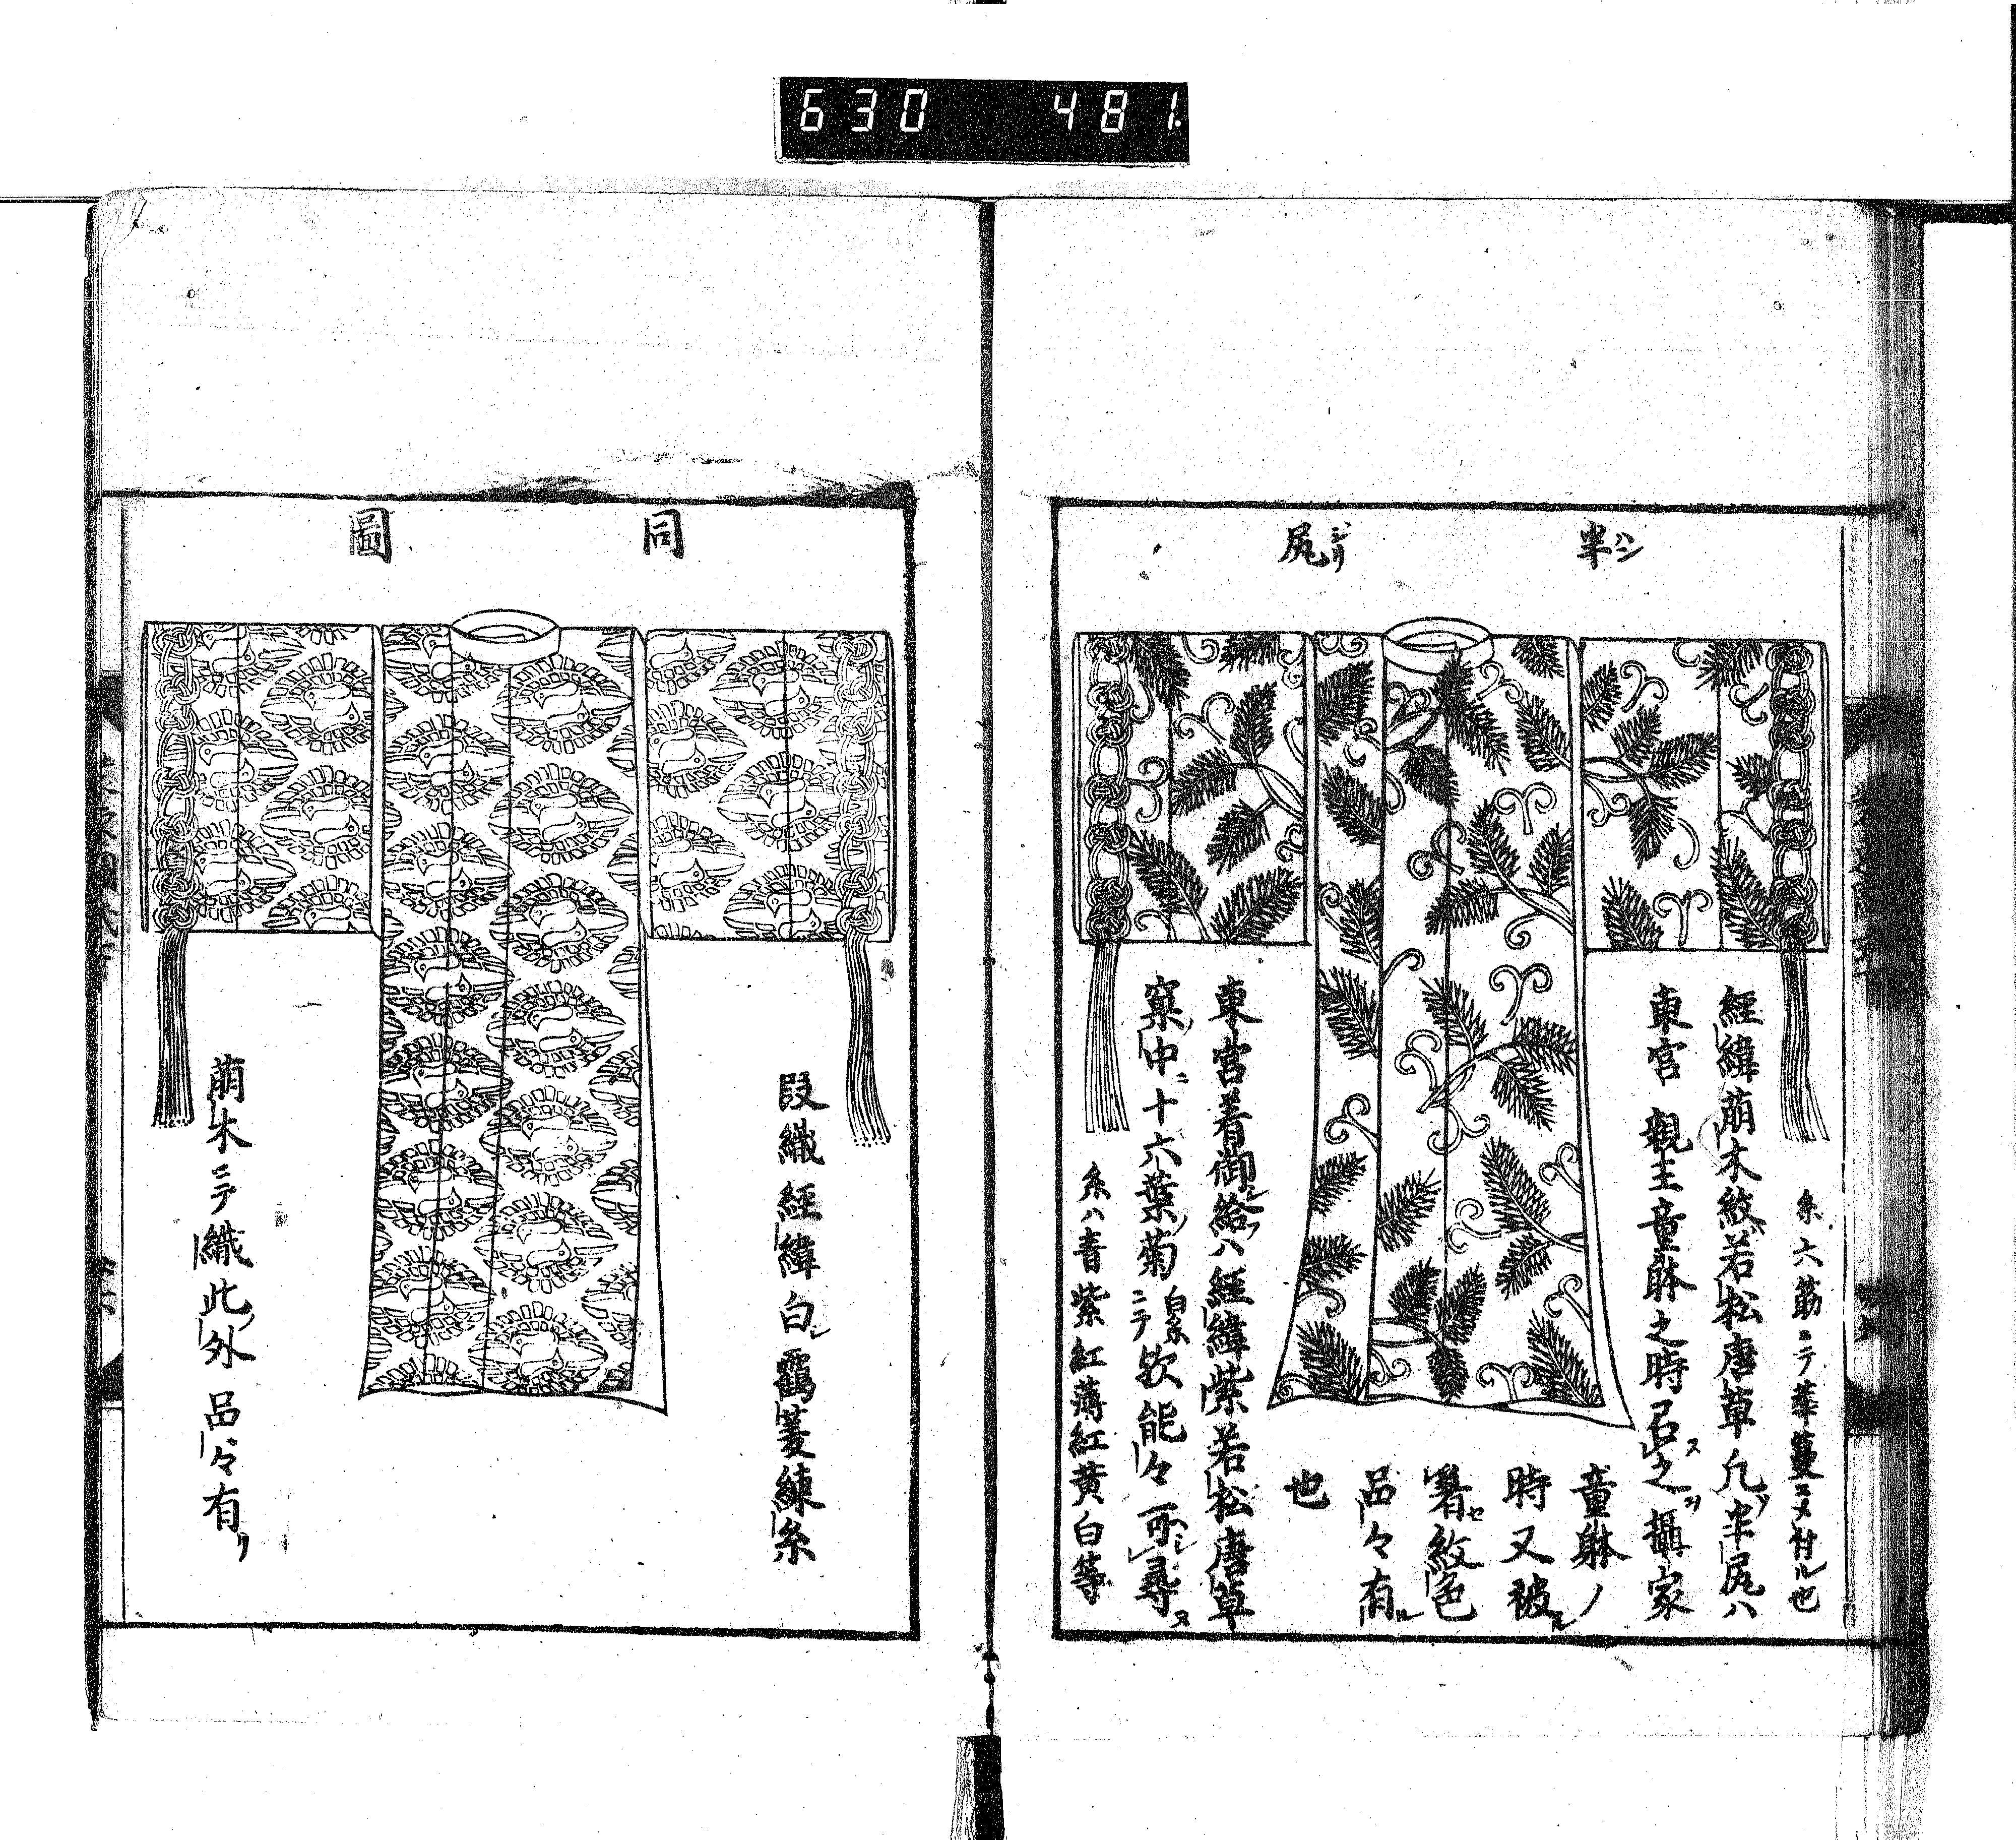 630 481.
半ハン
尻ジリ
糸六筋ニテ華鬘ニメ付ル也
経緯萌木紋若松唐草凢半尻ハ
東宮 親王童躰之時召ス之ヲ攝家
童躰ノ
時又被ル
着セ紋色
品々有ル
也
東宮着御シ給フハ経緯紫若松唐草
窠ノ中ニ十六葉ノ菊白糸ニテ欤能々可シ尋ヌ
糸ハ青紫紅薄紅黄白等
同
圖
段織経緯白シ鶴菱練糸
萌木ニテ織此ノ外品々有リ